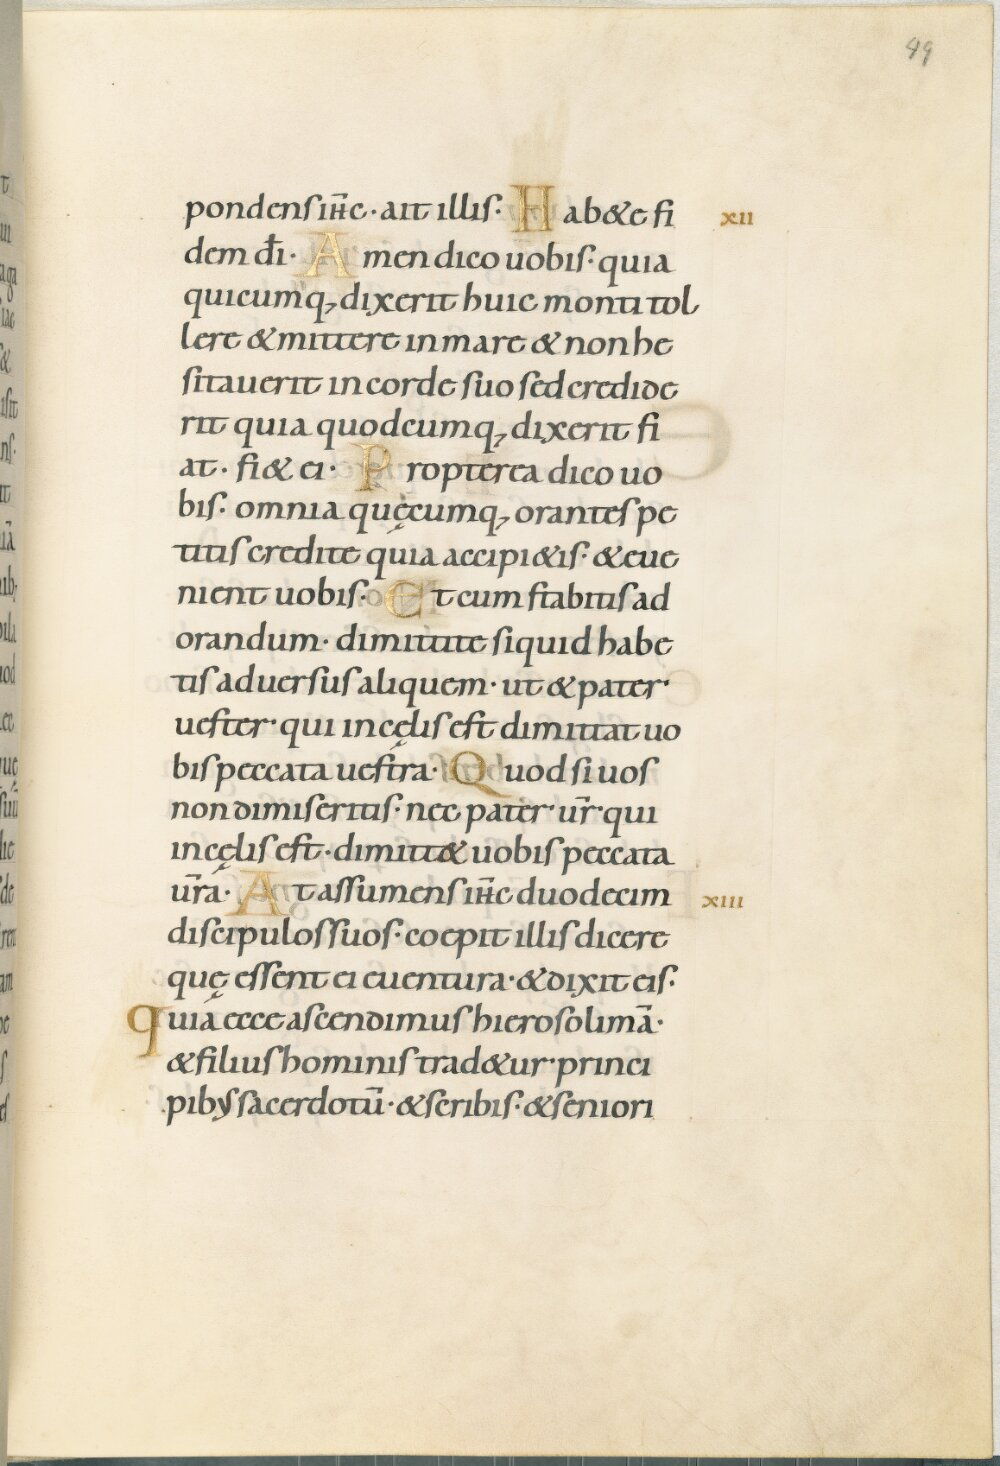 49
pondens ih̅c · ait illis · Hab&e fi xii
dem d̅i · Amen dico uobis · quia
quicumq, dixerit huic monti tol
lere & mittere in mare & non he
sitauerit in corde suo sed credide
rit quia quodcumq, dixerit fi
at · fi& ei · Propterea dico uo
bis · omnia quęcumq, orantes pe
titis credite quia accipi&is · & eue
nient uobis · Et cum stabitis ad
orandum · dimittite siquid habe
tis aduersus aliquem · ut & pater
uester · qui in cęlis est dimittat uo
bis peccata uestra · Quod si uos
non dimiseritis · nec pater ur̅ · qui
in cęlis est · dimitt& uobis peccata
ur̅a · At assumens ih̅c duodecim xiii
discipulos suos · coepit illis dicere
quę essent ei euentura · & dixit eis ·
Quia ecce ascendimus hierosolimā ·
& filius hominis trad&ur · princi
pib; sacerdotū · & scribis · & seniori